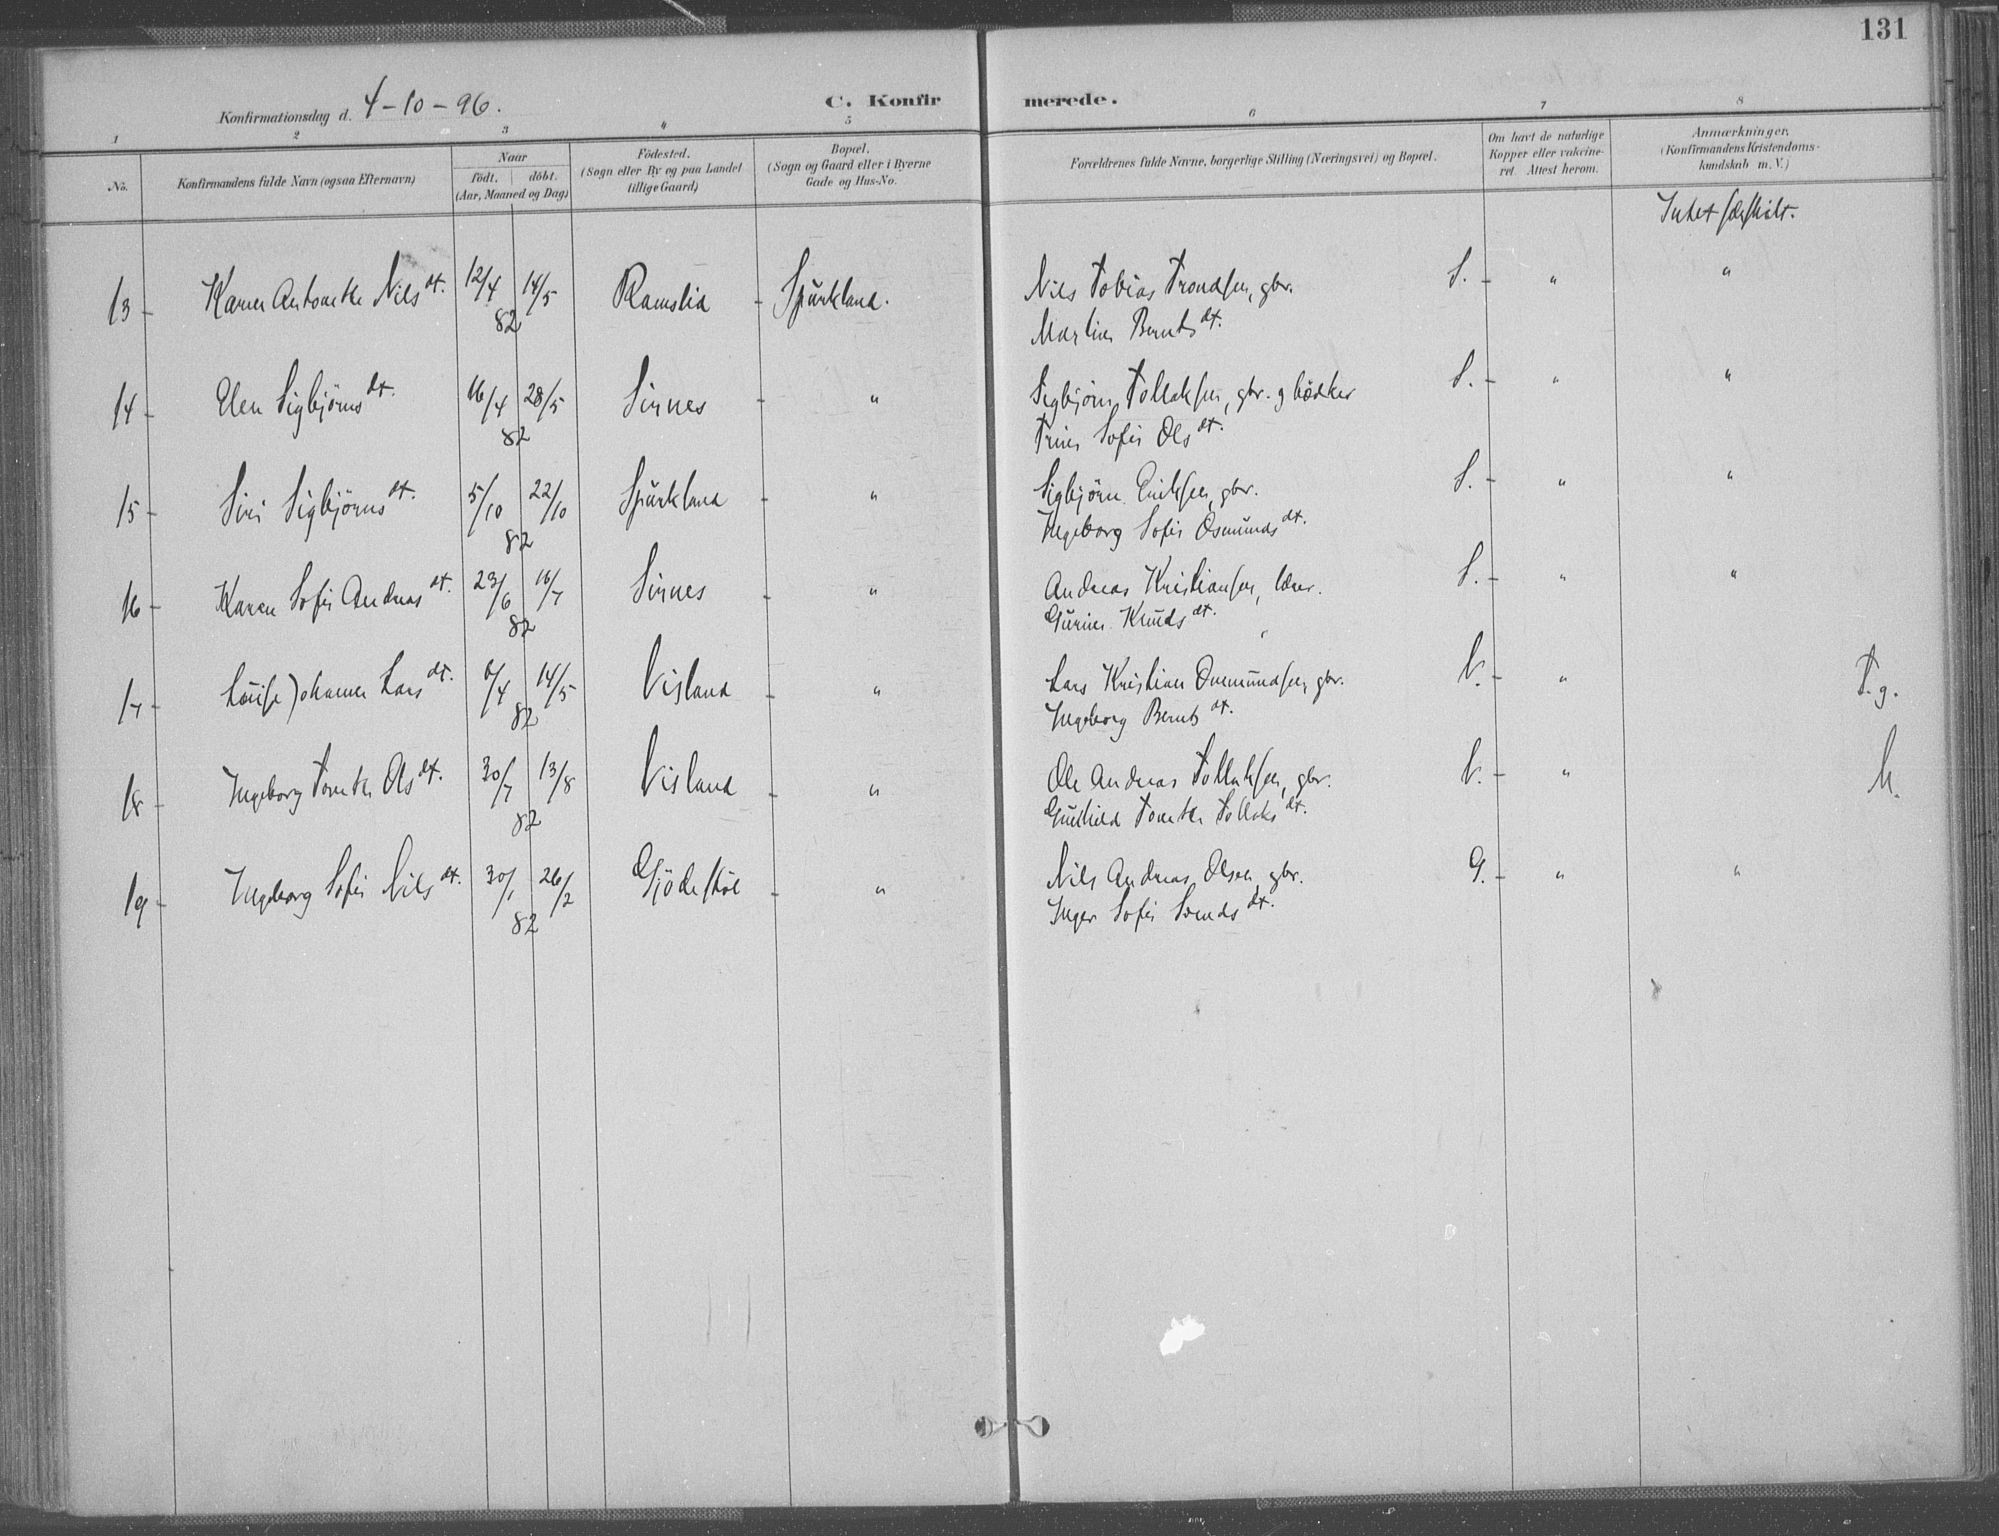 131
Konfirmationsdag d. 4-10-96.
C. Konfirmerede.
1 2 3 4 5 6 7 8
No.
Konfirmandens fulde Navn (ogsaa Efternavn)
Naar
født. døbt.
(Aar, Maaned og Dag)
Fødested.
(Sogn eller By og paa Landet
tillige Gaard)
Bopæl.
(Sogn og Gaard eller i Byerne
Gade og Hus-No.
Forældrenes fulde Navne, borgerlige Stilling (Næringsvei) og Bopæl.
Om havt de naturlige
Kopper eller vakcine-
ret. Attest herom.
Anmærkninger.
(Konfirmandens Kristendoms-
kundskab m. V.)
Intet særskilt.
13 - Karen Antonette Nils dt. 12/4 14/5 Ramslia - Spürkland. Nils Tobias Trondsen, gbr. S. - " "
82 Martine Bernts dt.
14 - Elen Sigbjörns dt. 16/4 28/5 Sinnes - " Sigbjörn Tollaksen, gbr. g bödker S. - " "
82 Trine Sofie Ols dt.
15 - Siri Sigbjörns dt. 5/10 22/10 Spürkland - " Sigbjörn Eriksen, gbr. S. - " "
82 Ingeborg Sofie Osmünds dt.
16 - Karen Sofie Andreas dt. 23/6 16/7 Sinnes - " Andreas Kristiansen, lærer. S. - " "
82 Gürine Knüds dt.
17 - Loüise Johanne Lars dt. 6/4 14/5 Visland - " Lars Kristian Onmündsen, gbr. V. - " T. g.
82 Ingeborg Bernts dt.
18 - Ingeborg Tonette Ols dt. 30/7 13/8 Visland - " Ole Andreas Tollaksen, gbr. V. - " M.
82 Günhild Tonette Tollaks dt.
19 - Ingeborg Sofie Nils dt. 30/1 26/2 Gjödestöl - " Nils Andreas Olsen, gbr. G. - " "
82 Inger Sofie Svends dt.